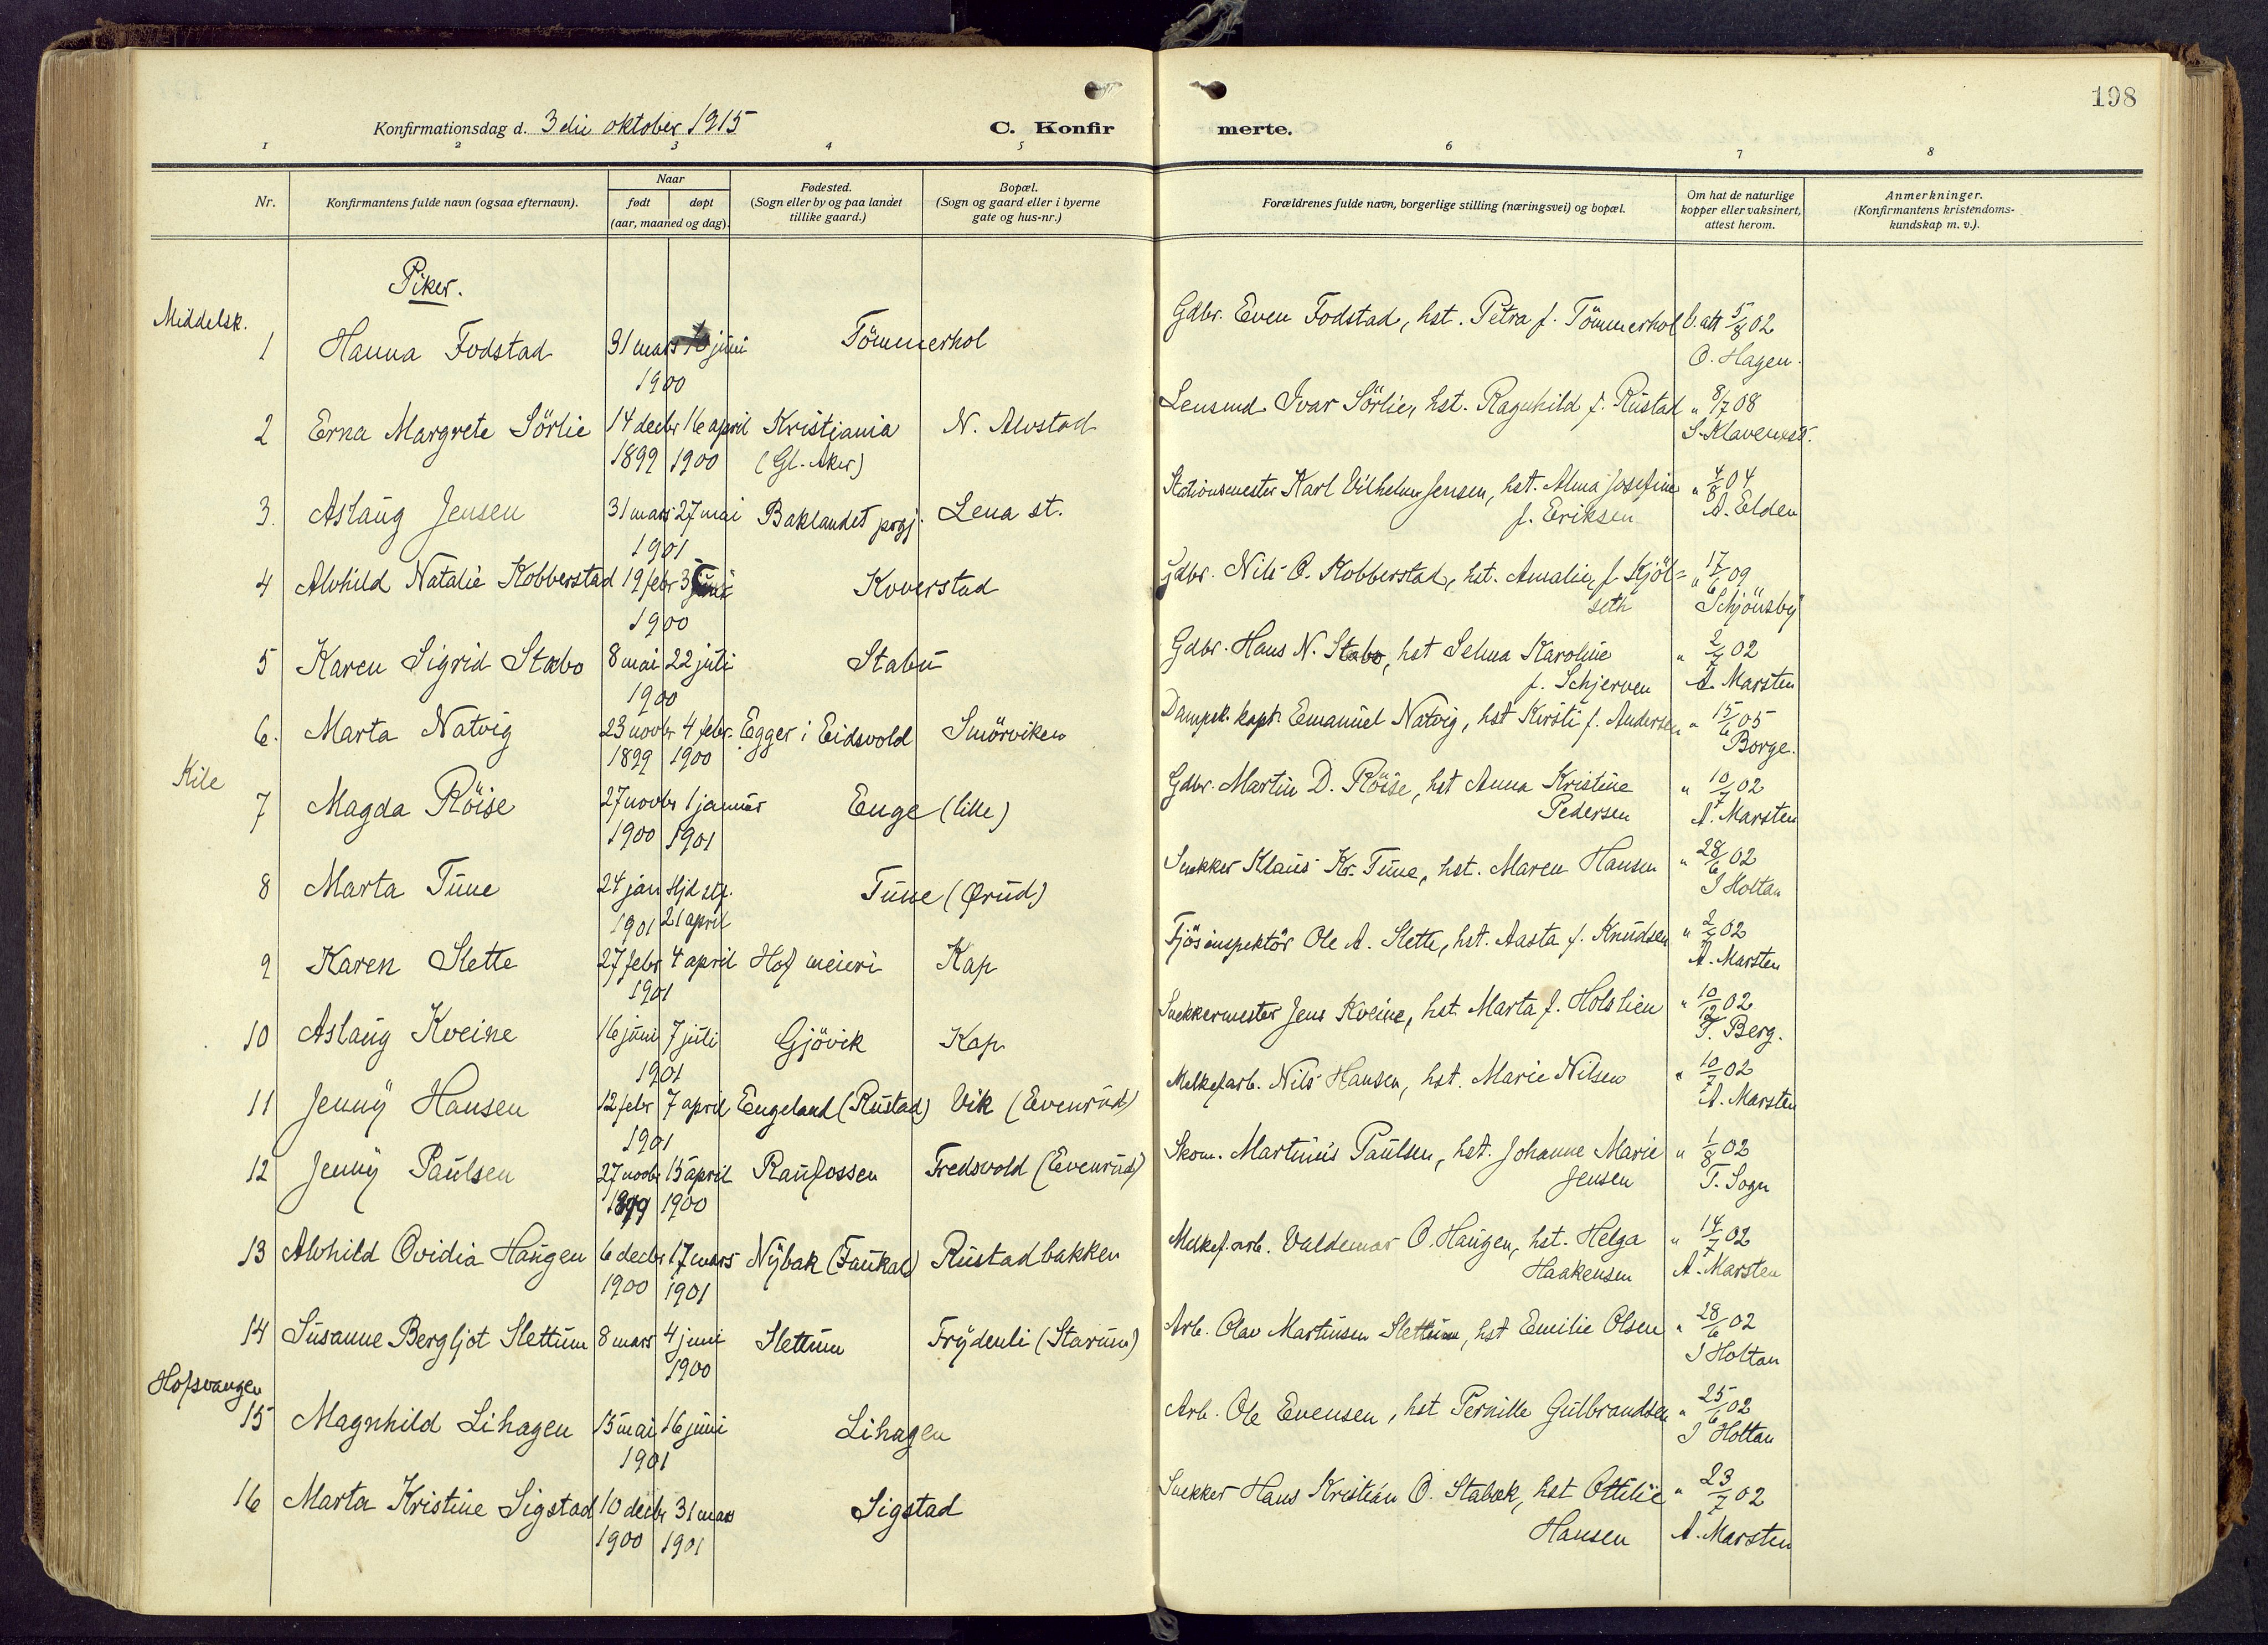 198
Konfirmationsdag d. 3die oktober 1915
C. Konfir merte.
1 2 3 4 5 6 7 8
Nr.
Konfirmantens fulde navn (ogsaa efternavn).
Naar
født døpt
(aar, maaned og dag).
Fødested.
(Sogn eller by og paa landet
tillike gaard.)
Bopæl.
(Sogn og gaard eller i byerne
gate og hus-nr.)
Forældrenes fulde navn, borgerlige stilling (næringsvei) og bopæl.
Om hat de naturlige
kopper eller vaksinert,
attest herom.
Anmerkninger.
(Konfirmantens kristendoms-
kundskap m. v.).
Piker.
Middelsk.
1 Hanna Fodstad 31 mars juni Tömmerhol Gdbr. Even Fodstad, hst. Petra f. Tömmerhol b. att 5/8 02
1900 O. Hagen.
2 Erna Margrete Sörlie 14 decbr 16 april Kristiania N. Alvstad Lensmd. Ivar Sörlie, hst. Ragnhild f. Rustad " 8/7 08
1899 1900 (Gl. Aker) S. Klavenes
3. Aslaug Jensen 31 mars 27 mai Baklandet prgj. Lena st. Stationsmester Karl Vilhelm Jensen, hst. Alma Josefine " 4/8 04
1901 f. Eriksen A. Elden
4 Alvhild Natalie Kobberstad 19 febr 3 juni Koverstad Gdbr. Nils O. Kobberstad, hst. Amalie, f. Kjöl= " 17/6 09
1900 seth Schjönsby
5 Karen Sigrid Stabo 8 mai 22 juli Stabu Gdbr. Hans N. Stabo, hst Selma Karoline " 2/7 02
1900 f. Schjerven A. Marsten
6. Marta Natvig 23 novbr 4 febr. Egger i Eidsvold Smörviken Dampsk. kapt. Emanuel Natvig, hst Kirsti f. Andersen " 15/6 05
1899 1900 Borge.
Kile
7 Magda Röise 27 novbr 1 januar Enge (lille) Gdbr. Martin D. Röise, hst Anna Kristine " 10/7 02
1900 1901 Pedersen A. Marsten
8 Marta Tune 24 jan Hjd stf. Tune (Ørud) Snekker Klaus Kr. Tune, hst. Maren Hansen " 28/6 02
1901 21 april I Holtan
9 Karen Slette 27 febr 4 april Hof meieri Kap Fjösinspektör Ole A. Slette, hst. Aasta f. Knudsen " 2/7 02
1901 A. Marsten
10 Aslaug Kveine 16 juni 7 juli Gjövik Kap Snekkermester Jens Kveine, hst. Marta f. Holslien " 10/12 02
1901 T. Berg.
11 Jenny Hansen 12 febr 7 april Engeland (Rustad) Vik (Evenrud) Melkef.arb. Nils Hansen, hst. Marie Nilsen " 10/7 02
1901 A. Marsten
12 Jenny Paulsen 27 novbr 15 april Raufossen Fredsvold (Evenrud) Skom. Martinus Paulsen, hst. Johanne Marie " 1/8 02
1899 1900 Jensen T. Sogn
13 Alvhild Ovidia Haugen 6 decbr 17 mars Nybak (Faukal) Rustadbakken Melkef.arb. Valdemar O. Haugen, hst. Helga " 14/7 02
1900 1901 Haakensen A. Marsten
14 Susanne Bergljot Slettum 8 mars 4 juni Slettum Frydenli (Starum) Arb. Olav Martinsen Slettum, hst Emilie Olsen " 28/6 02
1900 I Holtan
Hofsvangen
15 Magnhild Lihagen 15 mai 16 juni Lihagen Arb. Ole Evensen, hst Pernille Gulbrandsen " 25/6 02
1901 I Holtan
16 Marta Kristine Sigstad 10 decbr 31 mars Sigstad Snekker Hans Kristian O. Stabæk, hst Ottilie " 23/7 02
1900 1901 Hansen A. Marsten